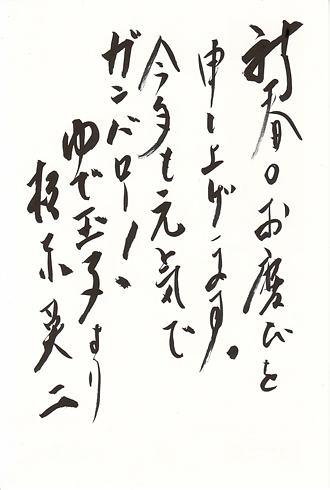 新春のお慶びを
申し上げます。
今年も元気で
ガンバロー！
ゆで玉子より
板東英二